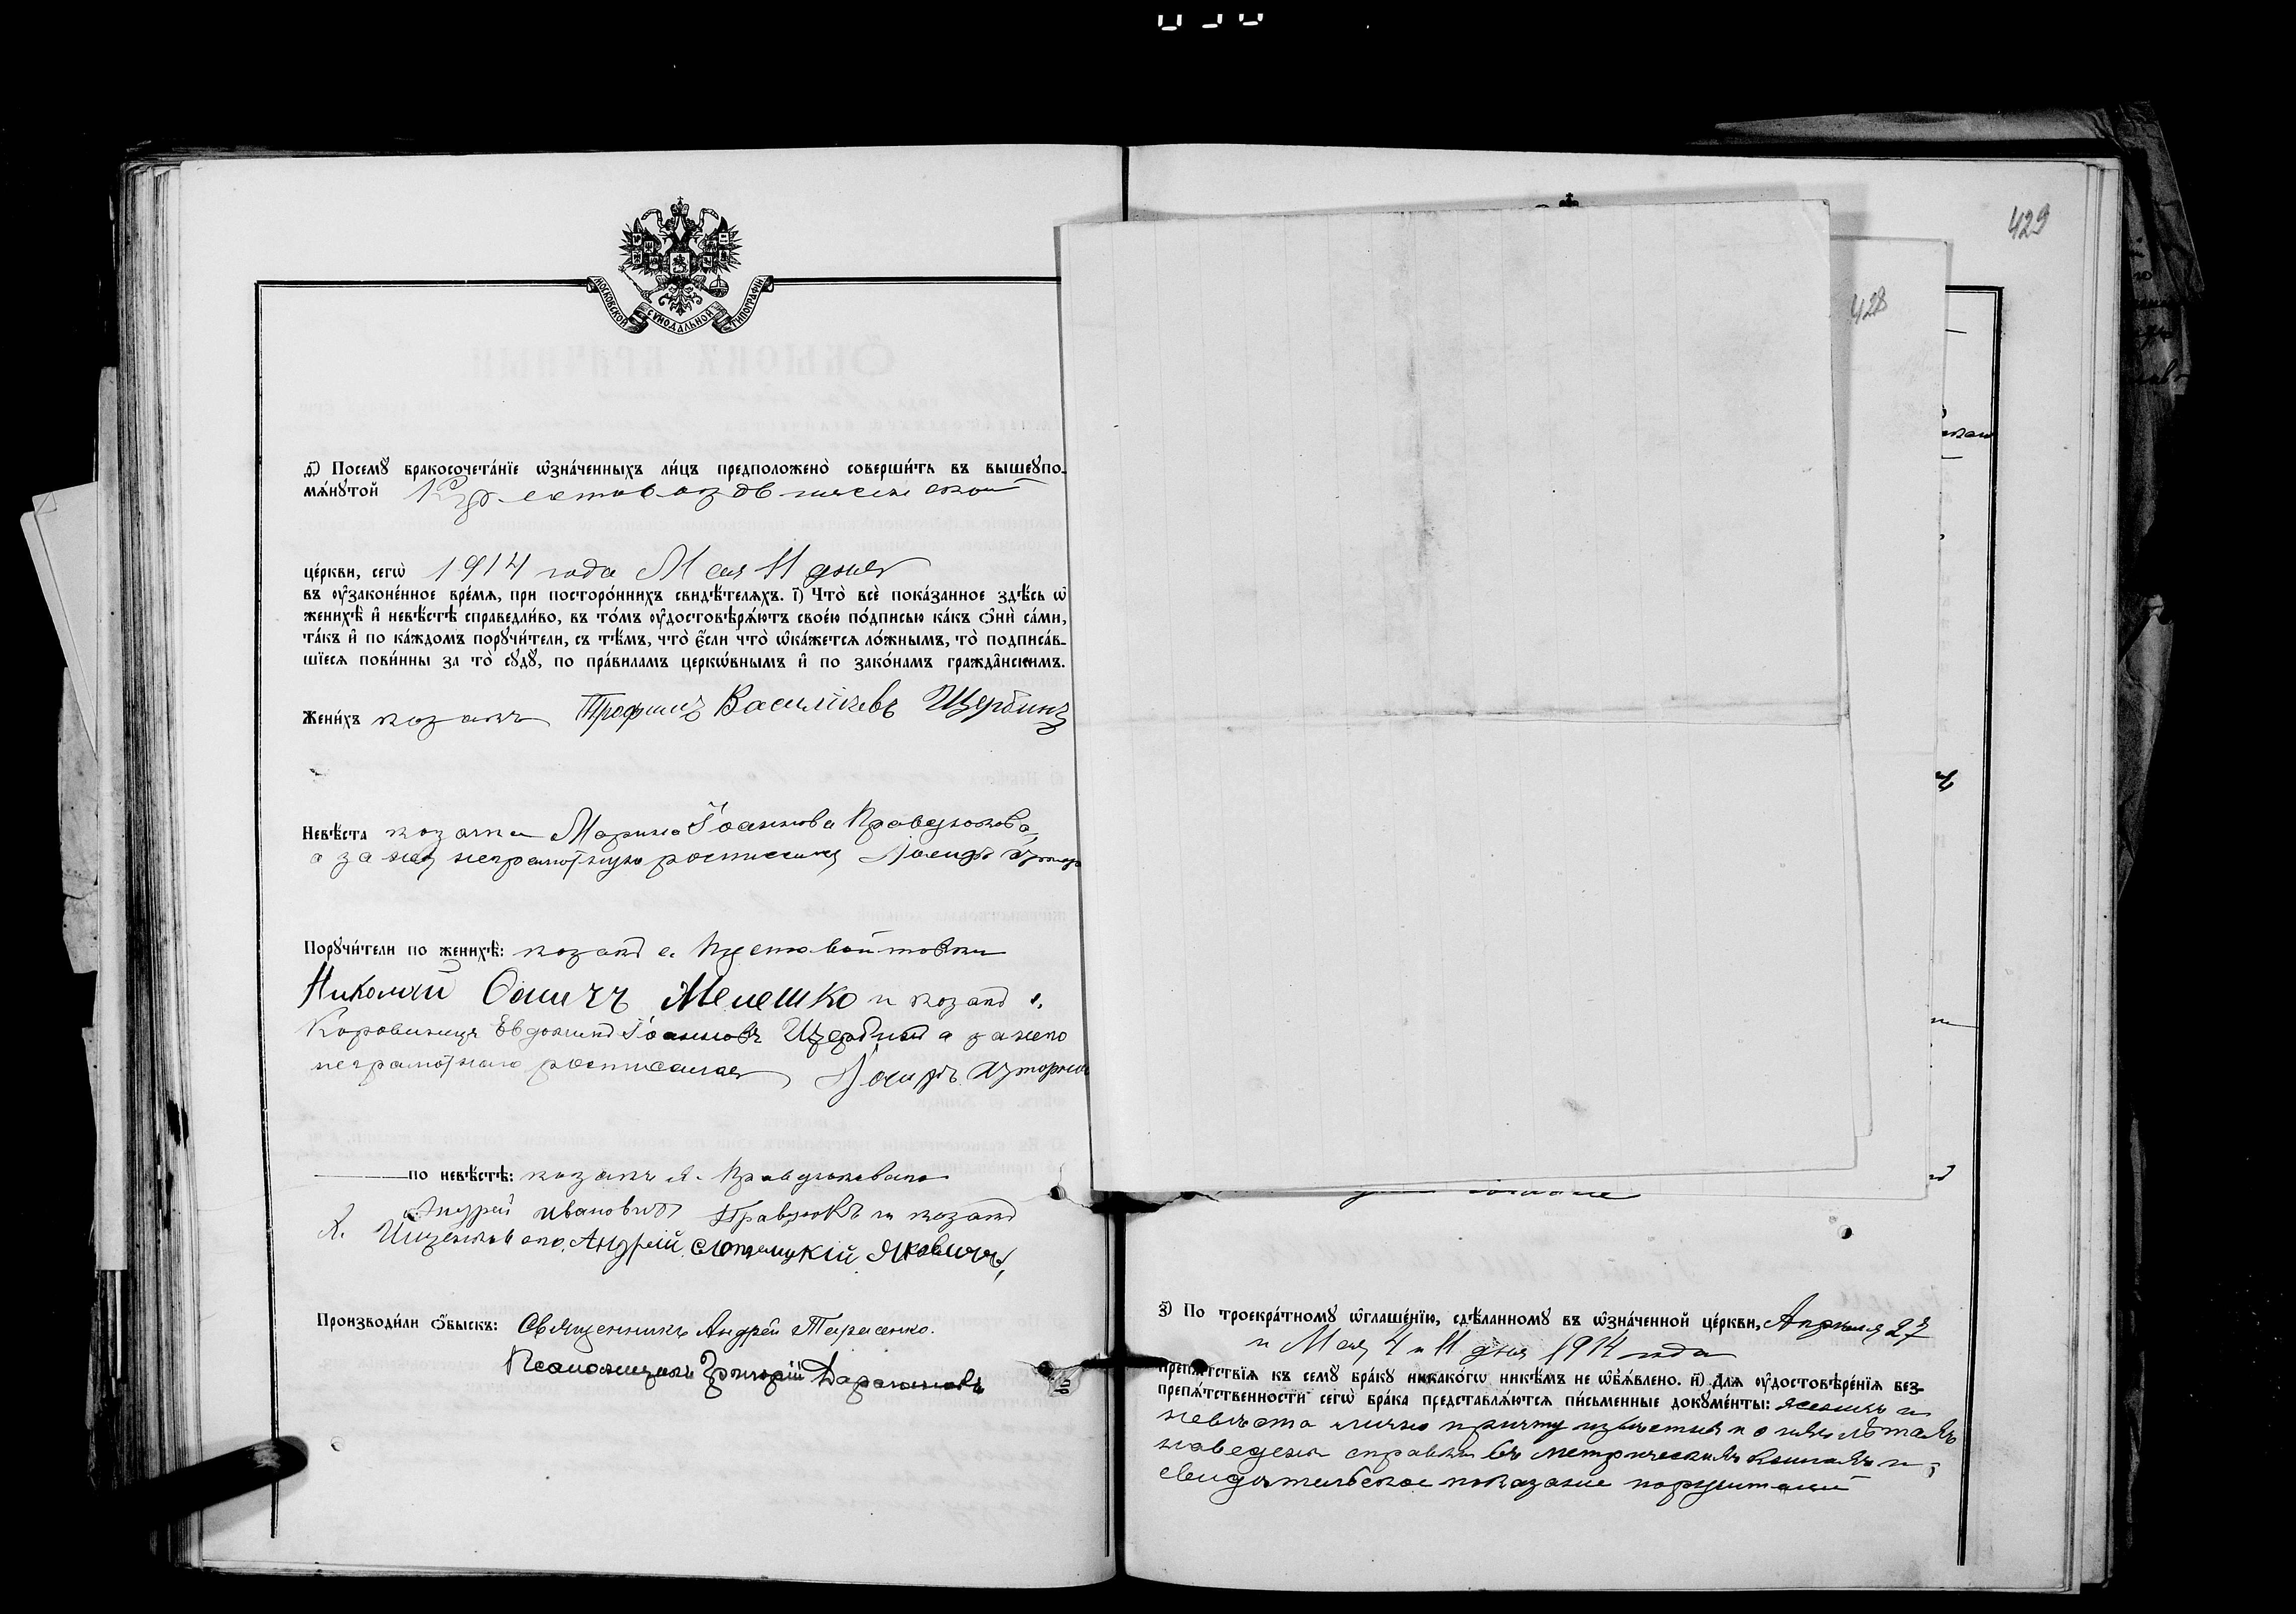 МОСКОВСКОЙ СѴНОДАЛЬНОЙ ТИПОГРАФІИ
ѳ҃) Посемꙋ̀ бракосочета́нїе ѡ҆зна́ченныхъ ли́цъ предположено̀ соверши́ть въ вышеꙋпо-
мѧ́нꙋтой Крестовоздвиженской
це́ркви, сегѡ̀ 1914 года Мая 11 дня
въ ᲂу҆законе́нное вре́мѧ, при посторо́ннихъ свидѣ́телѧхъ. і҃) Что̀ всѐ пока́занное здѣ́сь ѡ҆
женихѣ̀ и҆ невѣ́стѣ справедли́во, въ то́мъ ᲂу҆достовѣрѧ́ютъ свое́ю по́дписью ка́къ ѻ҆нѝ са́ми,
та́къ и҆ по ка́ждомъ порꙋчи́тели, съ тѣ́мъ, что̀ є҆́сли что̀ ѡ҆ка́жетсѧ ло́жнымъ, то̀ подписа́в-
шїесѧ пови́нны за то̀ сꙋдꙋ̀, по пра́виламъ церкѡ́внымъ и҆ по зако́намъ гражда̂нскимъ.
Жени́хъ козакъ Трофимъ Василіевъ Щербина
Невѣ́ста козачка Марина Іоаннова Правдюкова,
а за нея неграмотную росписался
Порꙋчи́тели по женихѣ̀: козакъ с. Пустовойтовки
Николай Мелешко и козакъ с.
Коровинецъ Евдокимъ Іоанновъ Щербина а за него
неграмотнаго росписался
по невѣ́стѣ: козакъ х. Правдюковаго
Андрей Ивановичъ Правдюкъ и козакъ
х. Андрей Яковичъ,
Производи́ли ѻ҆́быскъ: Священникъ Андрей Тарасенко.
Псаломщикъ Григорій
429
428
з҃) По троекра́тномꙋ ѡ҆глаше́нїю, сдѣ́ланномꙋ въ ѡ҆зна́ченной це́ркви, Апрѣля 27
и Мая 4 и 11 дня 1914 года
препѧ́тствїѧ къ семꙋ̀ бра́кꙋ никако́гѡ никѣ́мъ не ѡ҆б̾ѧ́влено. и҃) Длѧ ᲂу҆достовѣре́нїѧ без-
препѧ́тственности сегѡ̀ бра́ка представлѧ́ютсѧ пи́сьменные докꙋме́нты: женихъ и
невѣста лично причту извѣстны о ихъ лѣтахъ
наведены справки въ метрическихъ книгахъ и
свидѣтельское показаніе поручителей